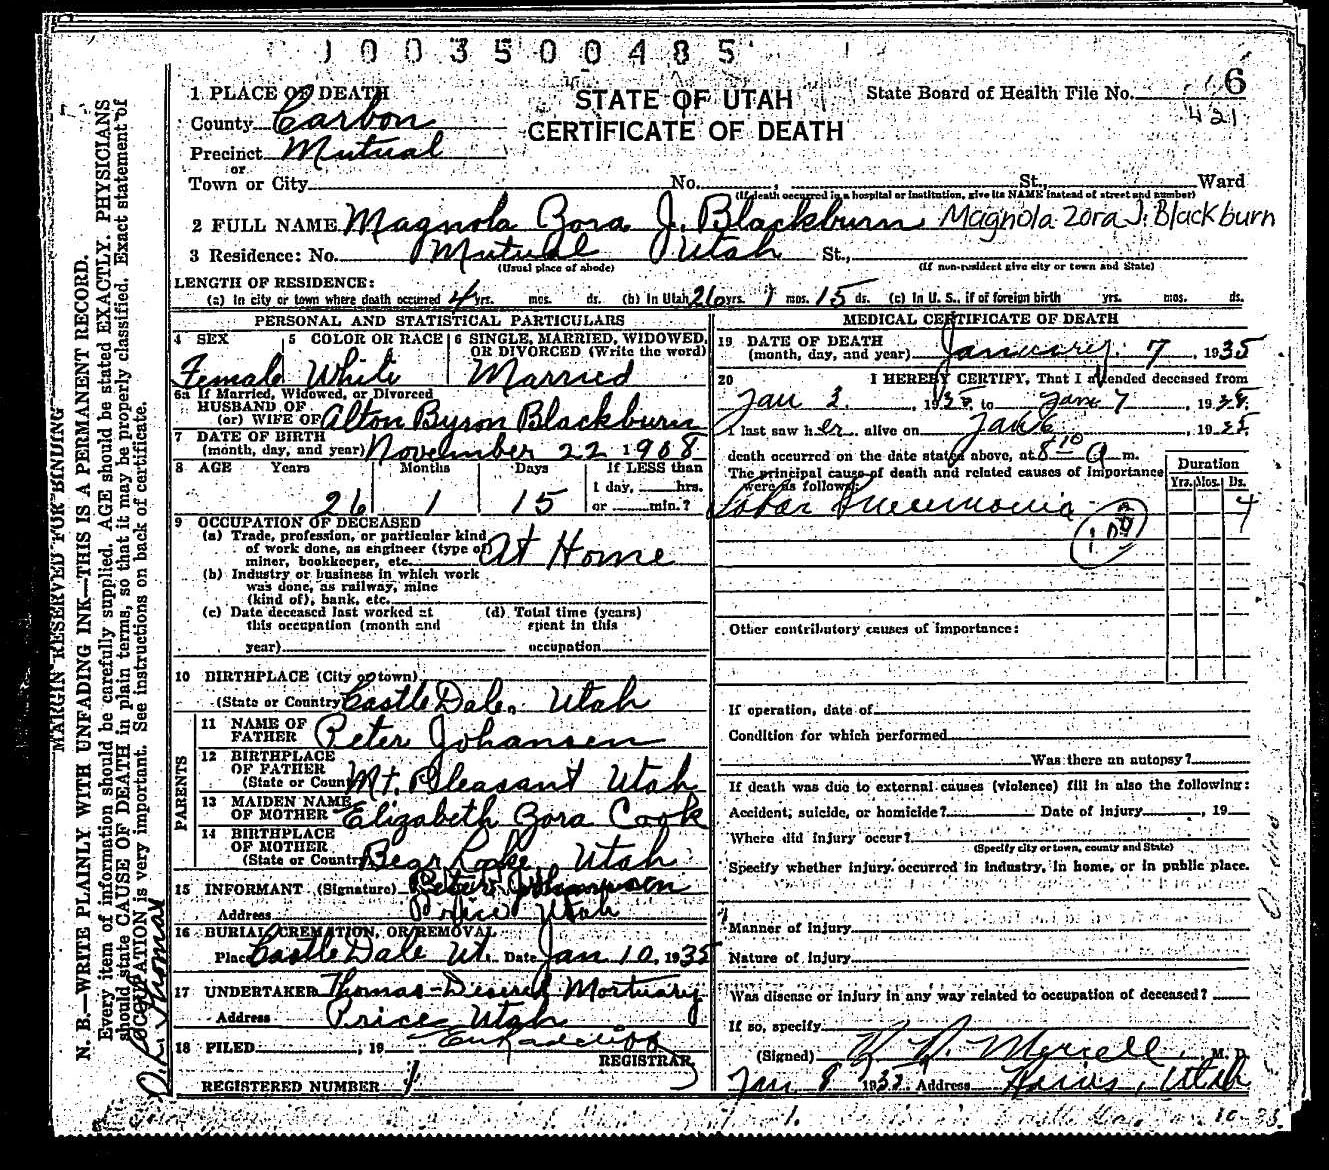 1003500485
1 PLACE OF DEATH
STATE OF UTAH
CERTIFICATE OF DEATH
State Board of Health File No. 6
421
County Carbon
Precinct Mutual
or
Town or City No. , St., Ward
(If death occurred in a hospital or institution, give its NAME instead of street and number)
2 FULL NAME Magnola Zora J. Blackburn Magnola Zora J. Blackburn
3 Residence: No. Mutual Utah St.,
(Usual place of abode) (If non-resident give city or town and State)
LENGTH OF RESIDENCE:
(a) In city or town where death occurred 4 yrs. mos. ds. (b) In Utah 26 yrs. 1 mos. 15 ds. (c) In U. S., if of foreign birth yrs. mos. ds.
PERSONAL AND STATISTICAL PARTICULARS
4 SEX 5 COLOR OR RACE 6 SINGLE, MARRIED, WIDOWED, OR DIVORCED (Write the word)
Female White Married
6a If Married, Widowed, or Divorced
HUSBAND OF
(or) WIFE OF Alton Byron Blackburn
7 DATE OF BIRTH
(month, day, and year) November 22 1908
8 AGE Years Months Days If LESS than
1 day, hrs.
26 1 15 or min.?
9 OCCUPATION OF DECEASED
(a) Trade, profession, or particular kind
of work done, as engineer (type of
miner, bookkeeper, etc. At Home
(b) Industry or business in which work
was done, as railway, mine
(kind of), bank, etc.
(c) Date deceased last worked at (d) Total time (years)
this occupation (month and spent in this
year) occupation
10 BIRTHPLACE (City or town)
(State or Country) Castle Dale, Utah
PARENTS
11 NAME OF
FATHER Peter Johansen
12 BIRTHPLACE
OF FATHER
(State or Country) Mt. Pleasant Utah
13 MAIDEN NAME
OF MOTHER Elizabeth Zora Cook
14 BIRTHPLACE
OF MOTHER
(State or Country) Bear Lake Utah
15 INFORMANT (Signature) Peter Johansen
Address Price Utah
16 BURIAL, CREMATION, OR REMOVAL
Place Castle Dale Ut. Date Jan 10, 1935
17 UNDERTAKER Thomas-Deseret Mortuary
Address Price Utah
18 FILED , 19
REGISTRAR
REGISTERED NUMBER 1
MEDICAL CERTIFICATE OF DEATH
19 DATE OF DEATH
(month, day, and year) January 7, 1935
20 I HEREBY CERTIFY, That I attended deceased from
Jan 3, 1935, to Jan 7, 1935
I last saw her alive on Jan 6, 1935
death occurred on the date stated above, at 8 10 a m.
The principal cause of death and related causes of importance
were as follows:
Duration
Yrs. Mos. Ds.
Lobar Pneumonia 4
108
Other contributory causes of importance:
If operation, date of
Condition for which performed
Was there an autopsy?
If death was due to external causes (violence) fill in also the following:
Accident, suicide, or homicide? Date of injury , 19
Where did injury occur?
(Specify city or town, county and State)
Specify whether injury occurred in industry, in home, or in public place.
Manner of injury
Nature of injury
Was disease or injury in any way related to occupation of deceased?
If so, specify
(Signed) Merrell, M. D.
Jan 8 1935 Address Hiawatha, Utah
MARGIN RESERVED FOR BINDING
N. B.—WRITE PLAINLY WITH UNFADING INK—THIS IS A PERMANENT RECORD.
Every item of information should be carefully supplied. AGE should be stated EXACTLY. PHYSICIANS
should state CAUSE OF DEATH in plain terms, so that it may be properly classified. Exact statement of
OCCUPATION is very important. See instructions on back of certificate.